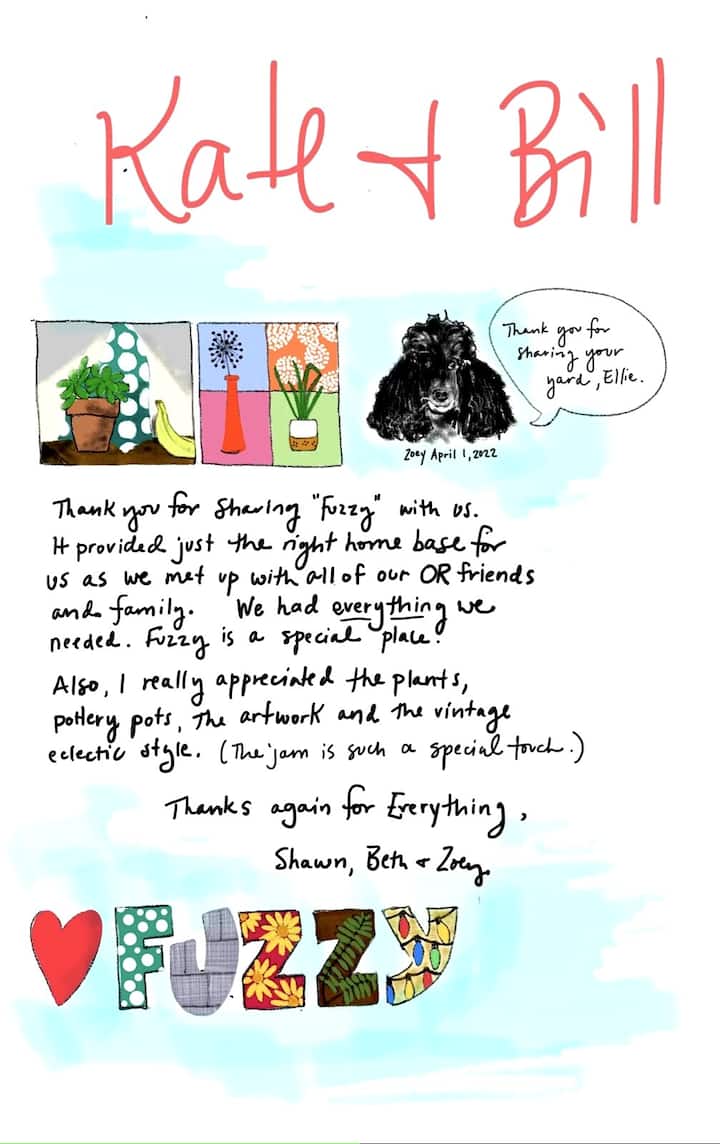 Kate + Bill
Thank you for
sharing your
yard, Ellie.
Zoey April 1, 2022
Thank you for sharing "Fuzzy" with us.
It provided just the right home base for
us as we met up with all of our OR friends
and family. We had everything we
needed. Fuzzy is a special place!
Also, I really appreciated the plants,
pottery pots, the artwork and the vintage
eclectic style. (The jam is such a special touch.)
Thanks again for Everything,
Shawn, Beth + Zoey
FUZZY